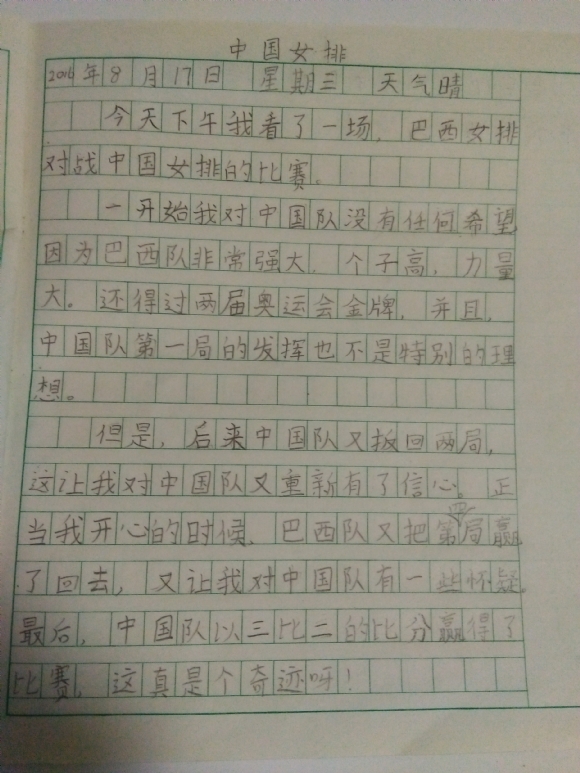 中国女排
2016年8月17日 星期三 天气晴
今天下午我看了一场，巴西女排
对战中国女排的比赛。
一开始我对中国队没有任何希望
因为巴西队非常强大，个子高，力量
大。还得过两届奥运会金牌，并且，
中国队第一局的发挥也不是特别的理
想。
但是，后来中国队又扳回两局，
这让我对中国队又重新有了信心。正
当我开心的时候，巴西队又把第四局赢
了回去，又让我对中国队有一些怀疑。
最后，中国队以三比二的比分赢得了
比赛，这真是个奇迹呀！